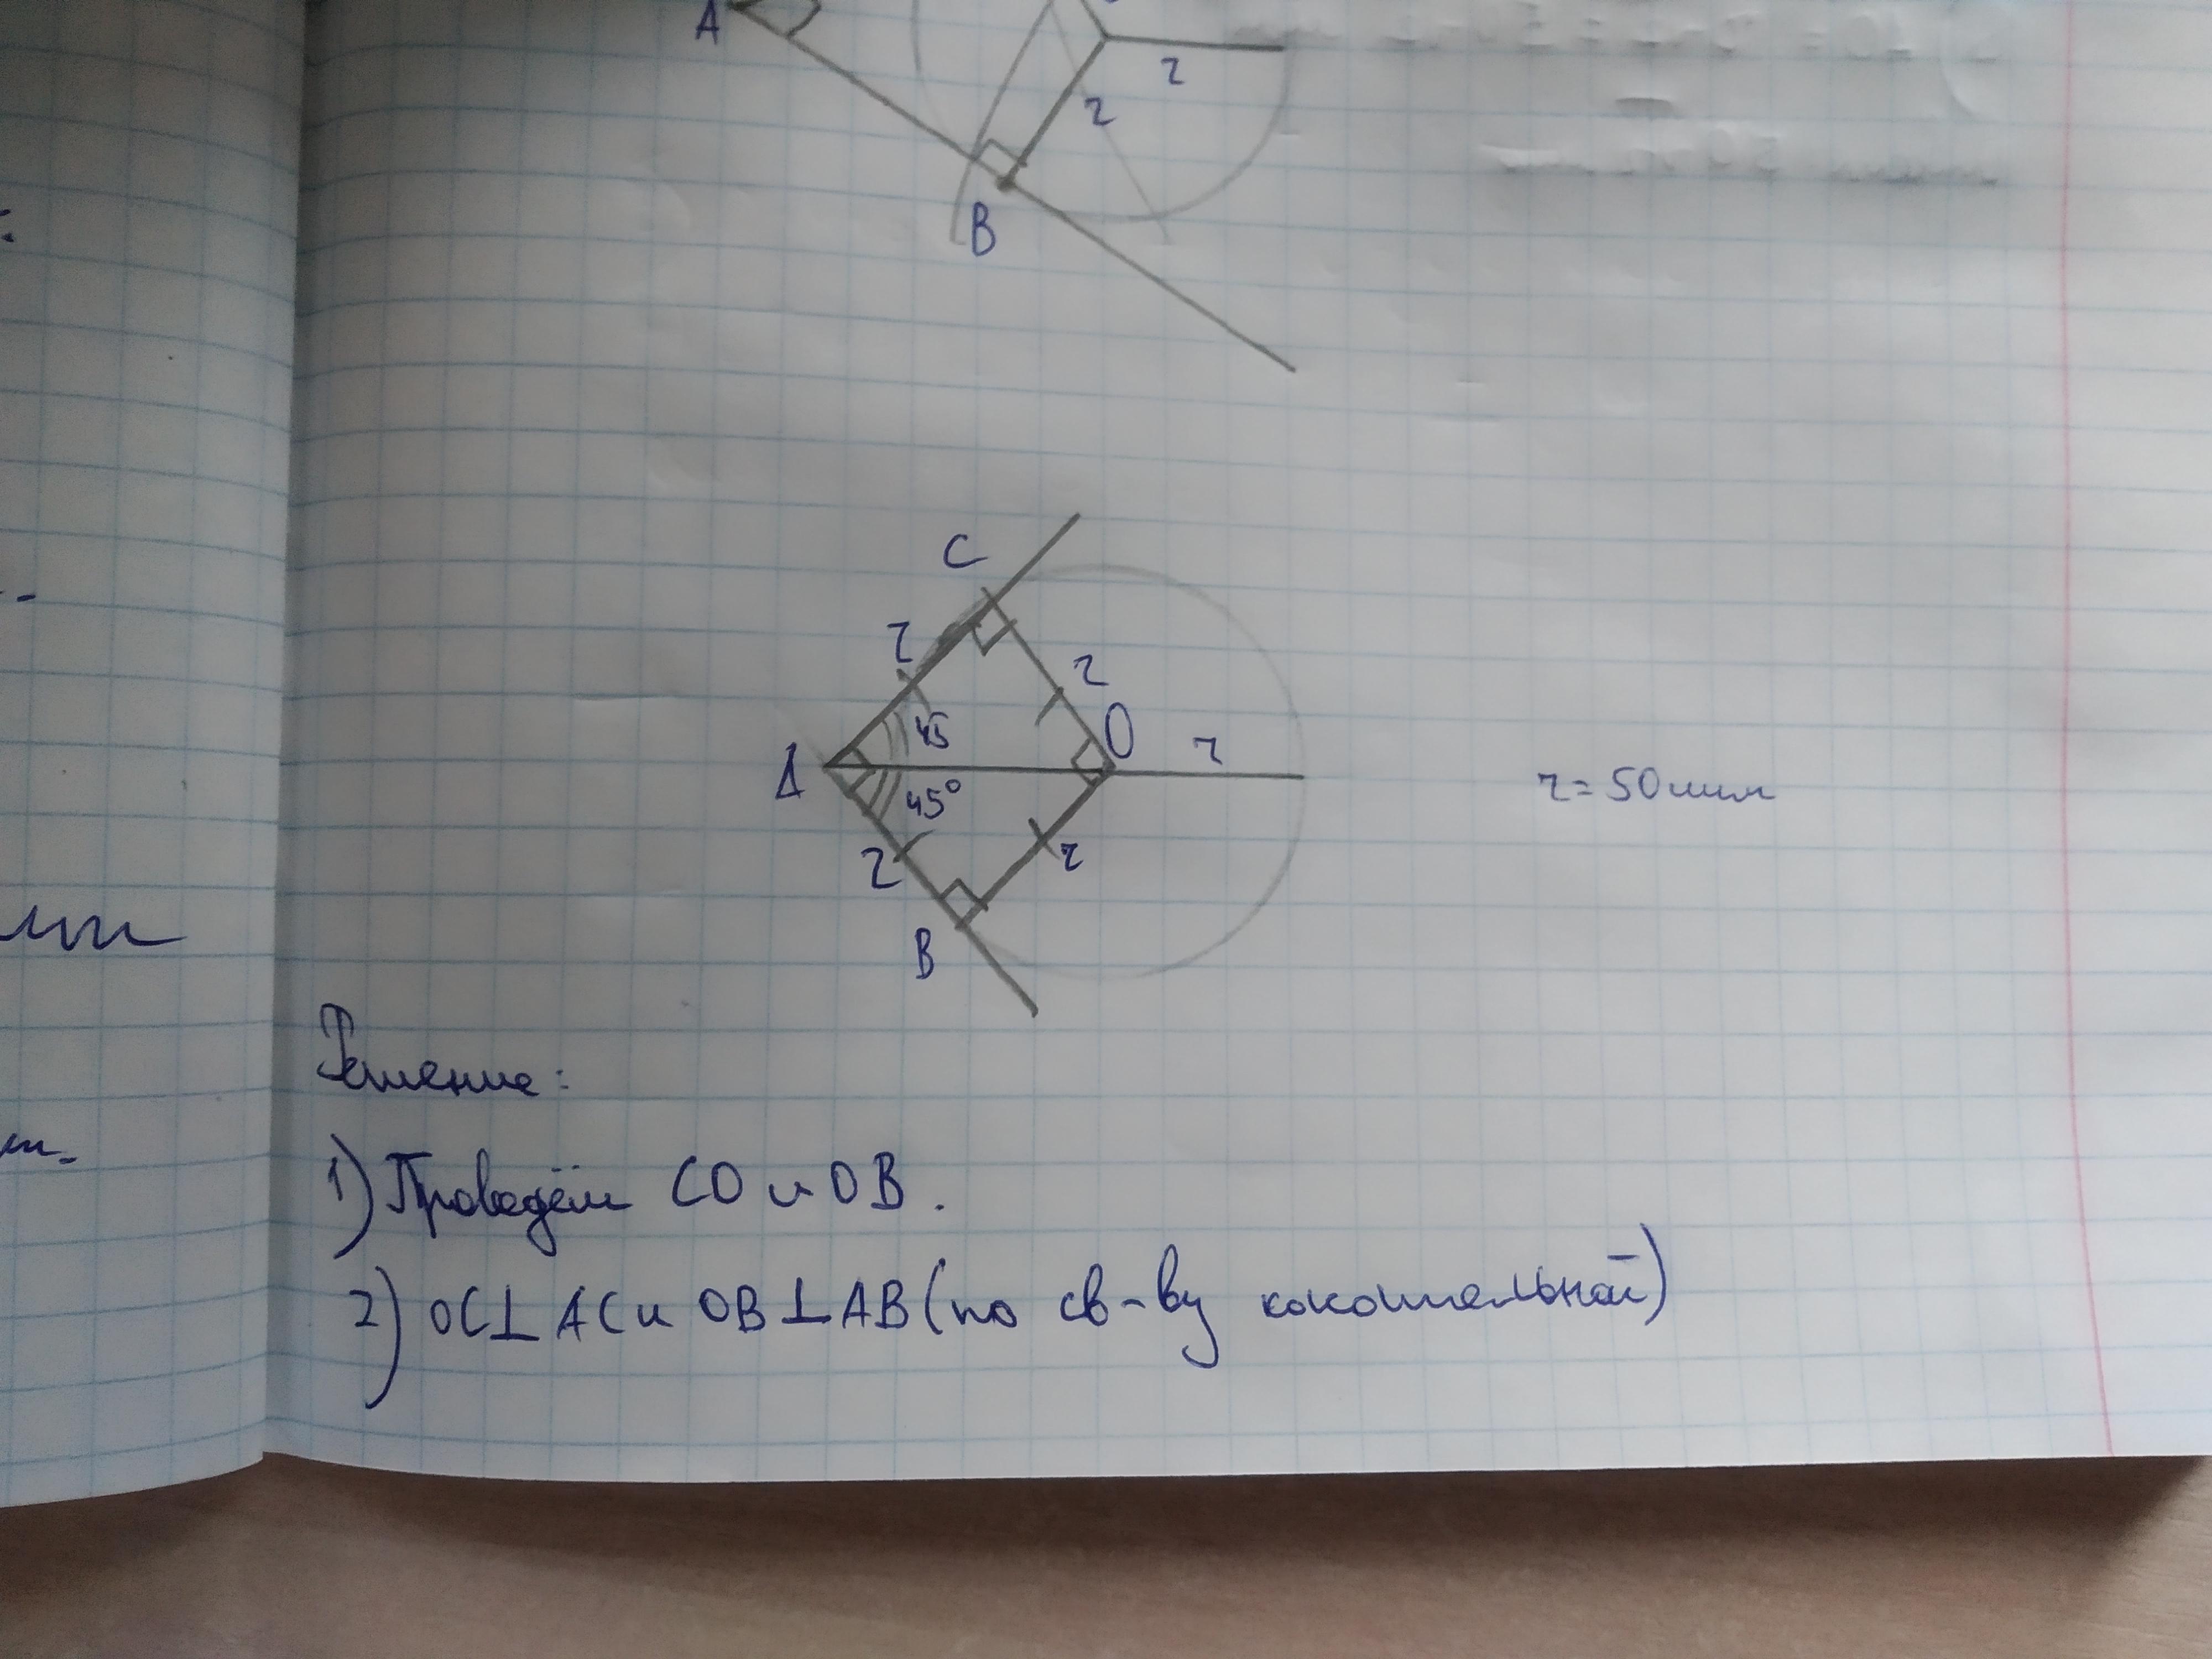 A
r
r
B
C
r
r
45
O
r
A
45°
r
r
B
r = 50 мм
Решение:
1) Проведём CO и OB.
2) OC⊥AC и OB⊥AB (по св-ву касательной)